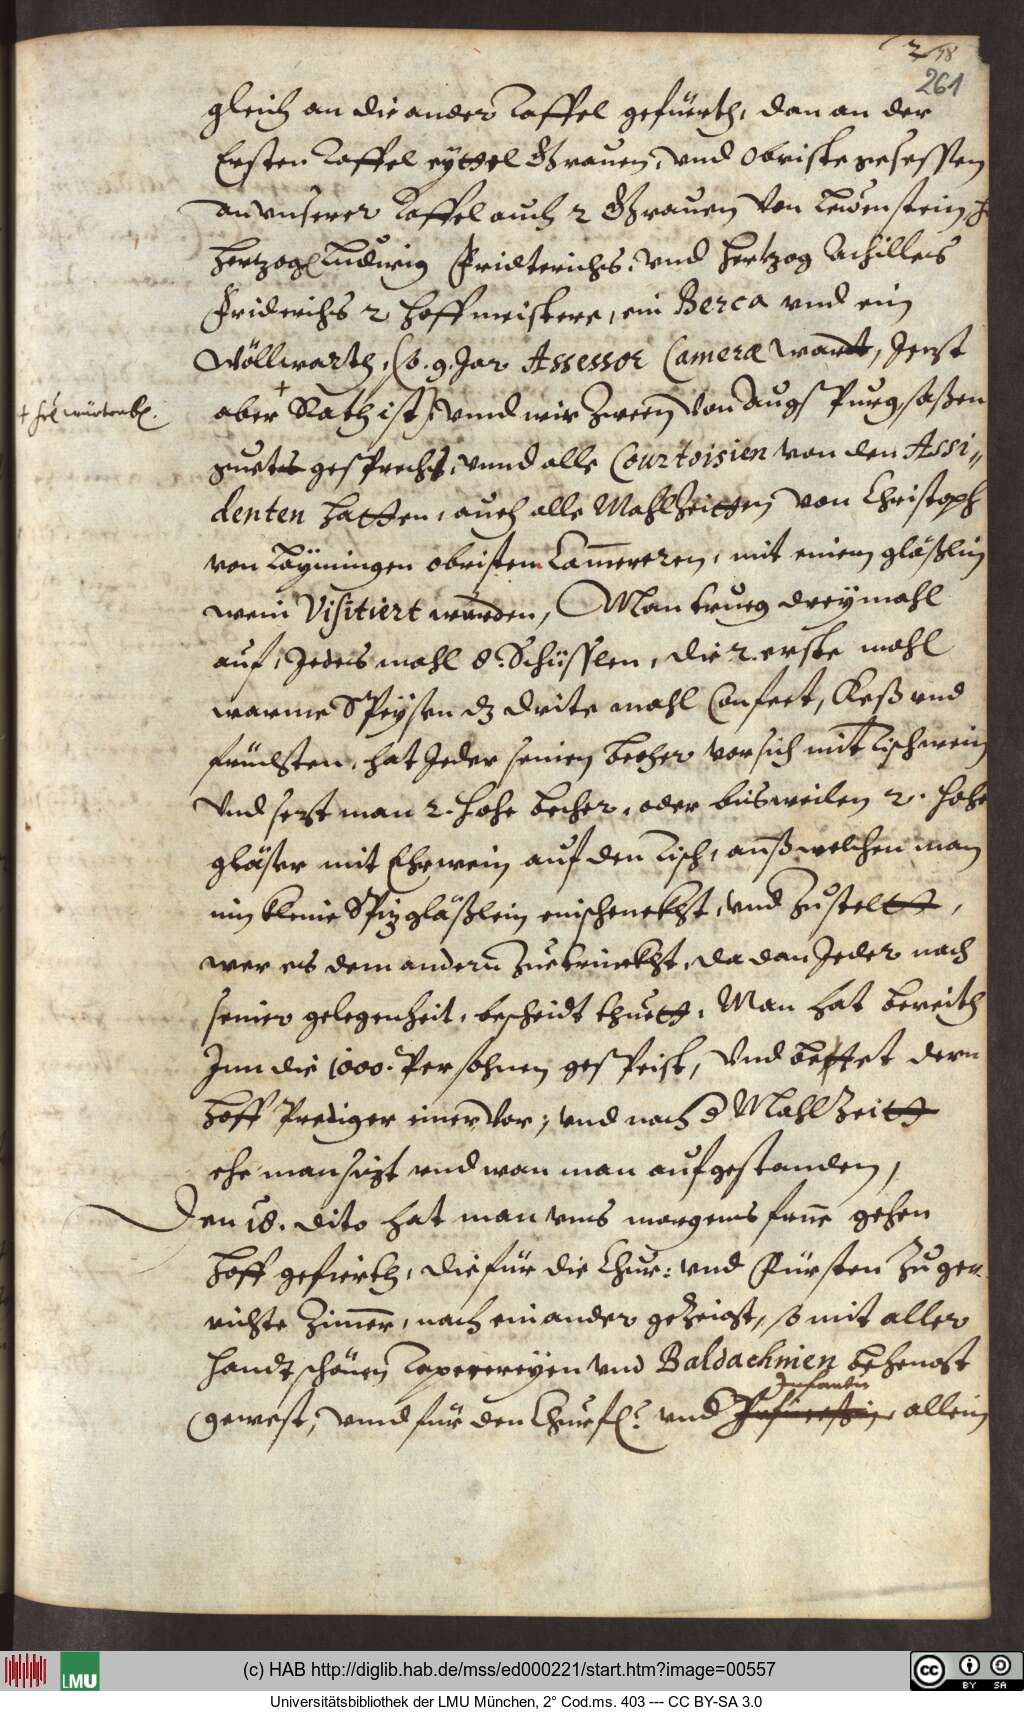 258
261
gleich an die ander Taffel gefüerth, dan an der
Ersten Taffel eyttel Grauen, vnd Obriste gesessen
an vnserer Taffel auch 2 Grauen von Lewenstein,
Hertzog Ludwig Fridterichs, vnd Hertzog Achilleis
Friderichs 2 Hoffmeistere, ein Berca vnd ein
Wöllwarth, (so 9. Jar Assessor Cameræ wardt, Jetzt
aber + Rath ist) vnnd wir zween von Augspurg saßen
+ würtenb.
guets gesprechs, vnnd alle Courtoisien von den Assi„
denten hatten, auch alle Mahlzeitten von Christoph
von Layningen obristem Cammereren, mit einem gläßlin
wein Visitiert wurden, Man trueg dreymahl
auf, Jedes mahl 8. Schüsslen, die 2. erste mahl
warme Speysen dz drite mahl Confect, Keß vnd
früchten, hat Jeder seinen becher vor sich mit Tischwein
Vnd setzt man 2. hohe becher, oder bisweilen 2. hohe
gläser mit Ehrwein auf den Tisch, auß welchen man
ein kleine Spizgläßlein einschenckht, vnd zustellt,
wer es dem andern zuetrinckht, da dan Jeder nach
seiner gelegenheit, bescheidt thuett, Man hat bereith
Inn die 1000. Persohnen gespeist, vnd bettet dern
Hoff Prediger imer vor, vnd nach d Mahlzeitt
ehe man sizt vnd wan man aufgestanden,
Den 18. dito hat man vnns morgens frue gehen
Hoff gefierth, die für die Chur: vnd Fürsten zu ger„
richte Zimmer, nach einander gezeigt, so mit aller
handt schönen Tapecereyen vnd Baldachinen behengt
Infantin
gewest, vnnd für den Churfl: vnd allein
(c) HAB http://diglib.hab.de/mss/ed000221/start.htm?image=00557
LMU
CC BY SA
Universitätsbibliothek der LMU München, 2° Cod.ms. 403 --- CC BY-SA 3.0